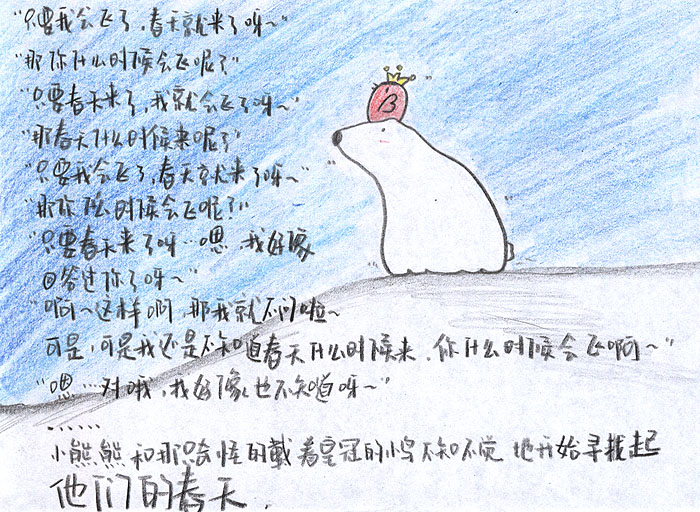 “只要我会飞了，春天就来了呀~”
“那你什么时候会飞呢？”
“只要春天来了，我就会飞了呀~”
“那春天什么时候来呢？”
“只要我会飞了，春天就来了呀~”
“那你什么时候会飞呢？”
“只要春天来了呀…嗯，我好像
回答过你了呀~”
“啊~这样啊，那我就不问啦~
可是，可是我还是不知道春天什么时候来，你什么时候会飞啊~”
“嗯…对哦，我好像也不知道呀~”
……
小熊熊和那只奇怪的戴着皇冠的小鸟不知不觉地开始寻找起
他们的春天.
B